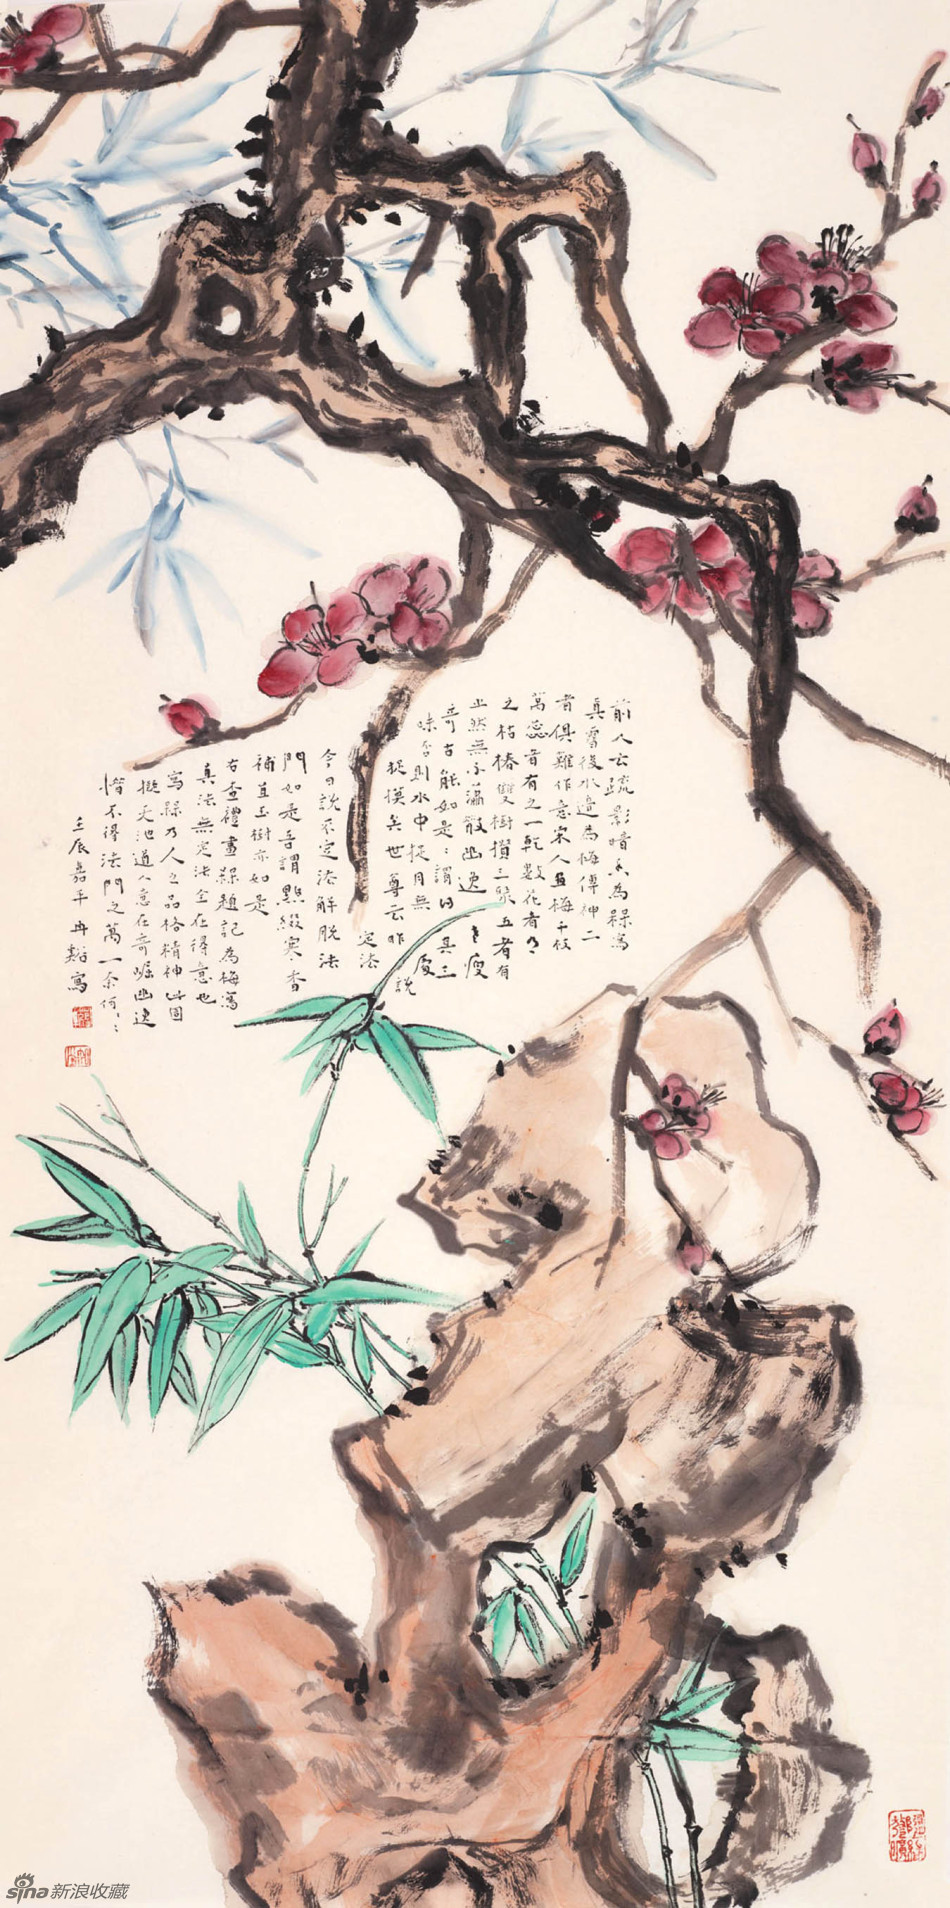 前人云疏影暗香為梅寫
真雪後水邊為梅傳神二
者俱難作意宋人畫梅千枝
萬蕊者有之一乾數花者有
之枯樁雙樹攢三聚五者有
之然無不蕭散幽逸
奇古能如是謂得其三
味否則水中捉月無處
捉摸矣世尊云昨說
定法
今日說不定法解脫法
門如是吾謂點綴寒香
補直玉樹亦如是
右查禮畫梅題記為梅寫
真法無定法全在得意也
寫梅乃人之品格精神此圖
擬天池道人意在奇崛幽逸
惜不得法門之萬一奈何
壬辰嘉平 冉 寫
sina新浪收藏